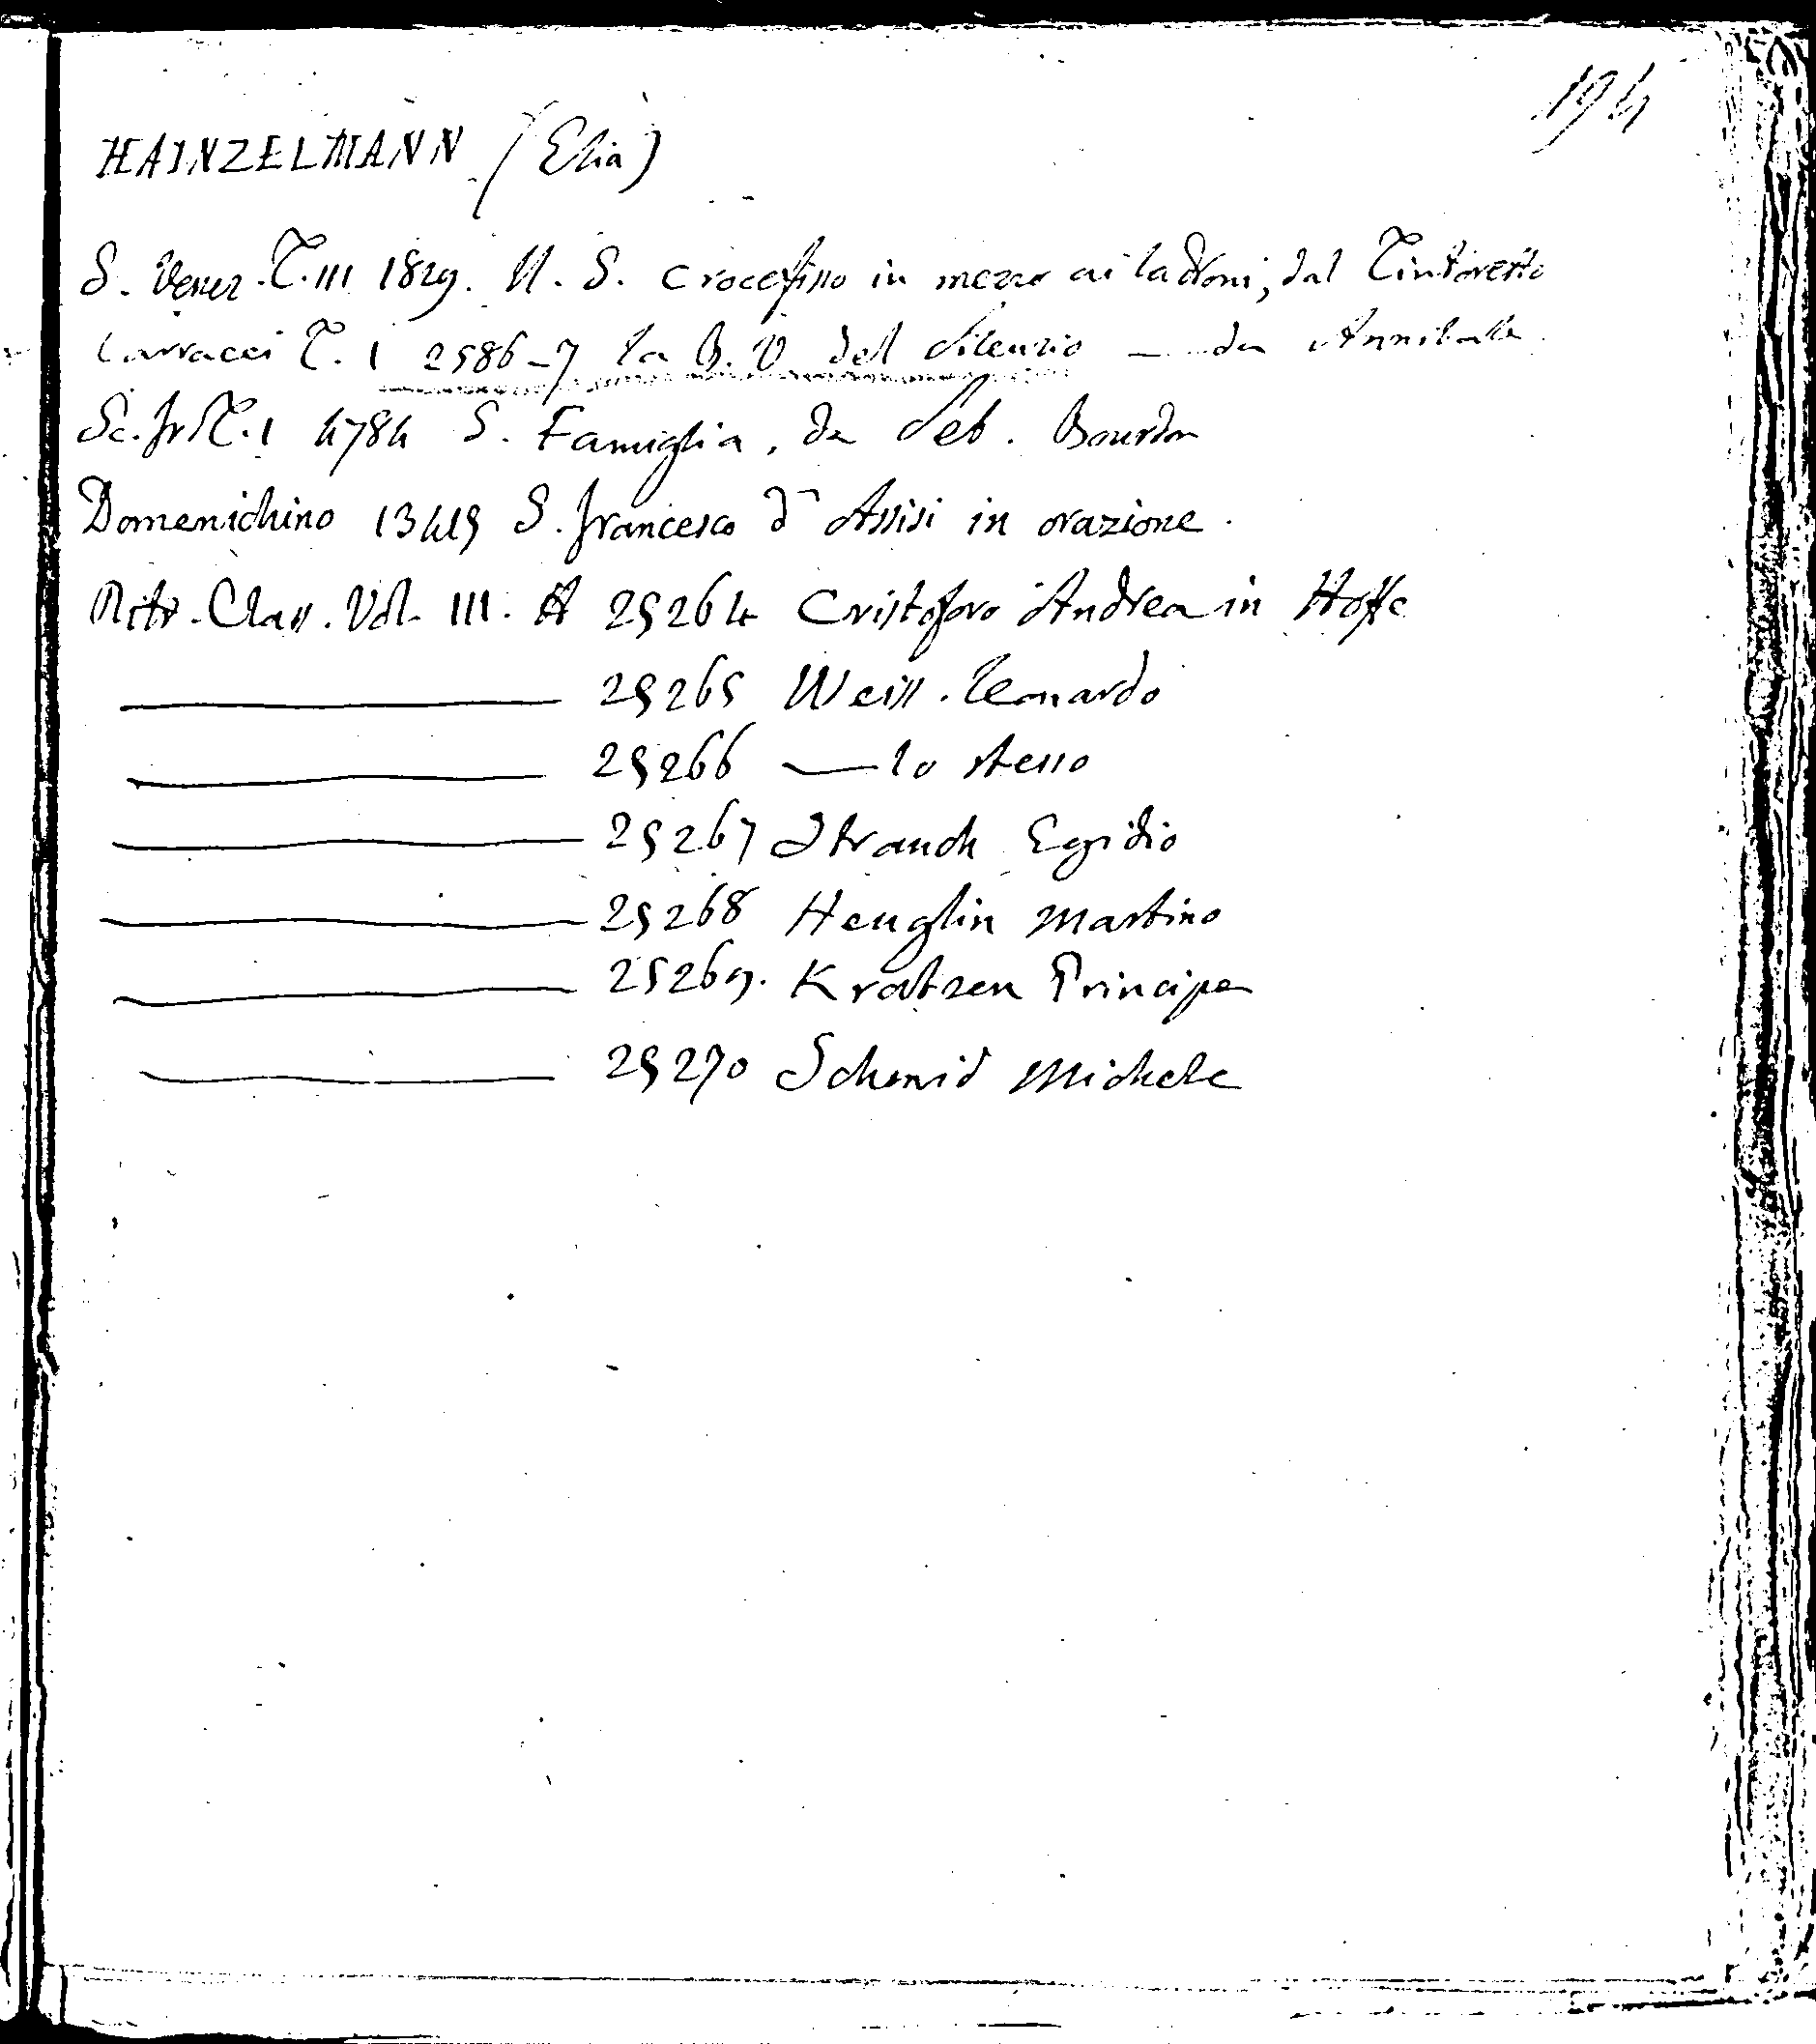 194
HAINZELMANN (Elia)
S. Venez. T. III 1829. N. S. Crocefisso in mezzo ai ladroni, dal Tintoretto
Carracci T. I 2586-7 la B. V. del Silenzio — da Annibale
Sc. Fr. T. I 4784 S. Famiglia, da Seb. Bourdon
Domenichino 13419 S. Francesco d'Assisi in orazione.
Ritr. Class. Vol. III. A 25264 Cristoforo Andrea in Hoffe
25265 Weiss. Leonardo
25266 — lo stesso
25267 Strauch Egidio
25268 Heuglin Martino
25269. Kratzen Principe
25270 Schmid Michele